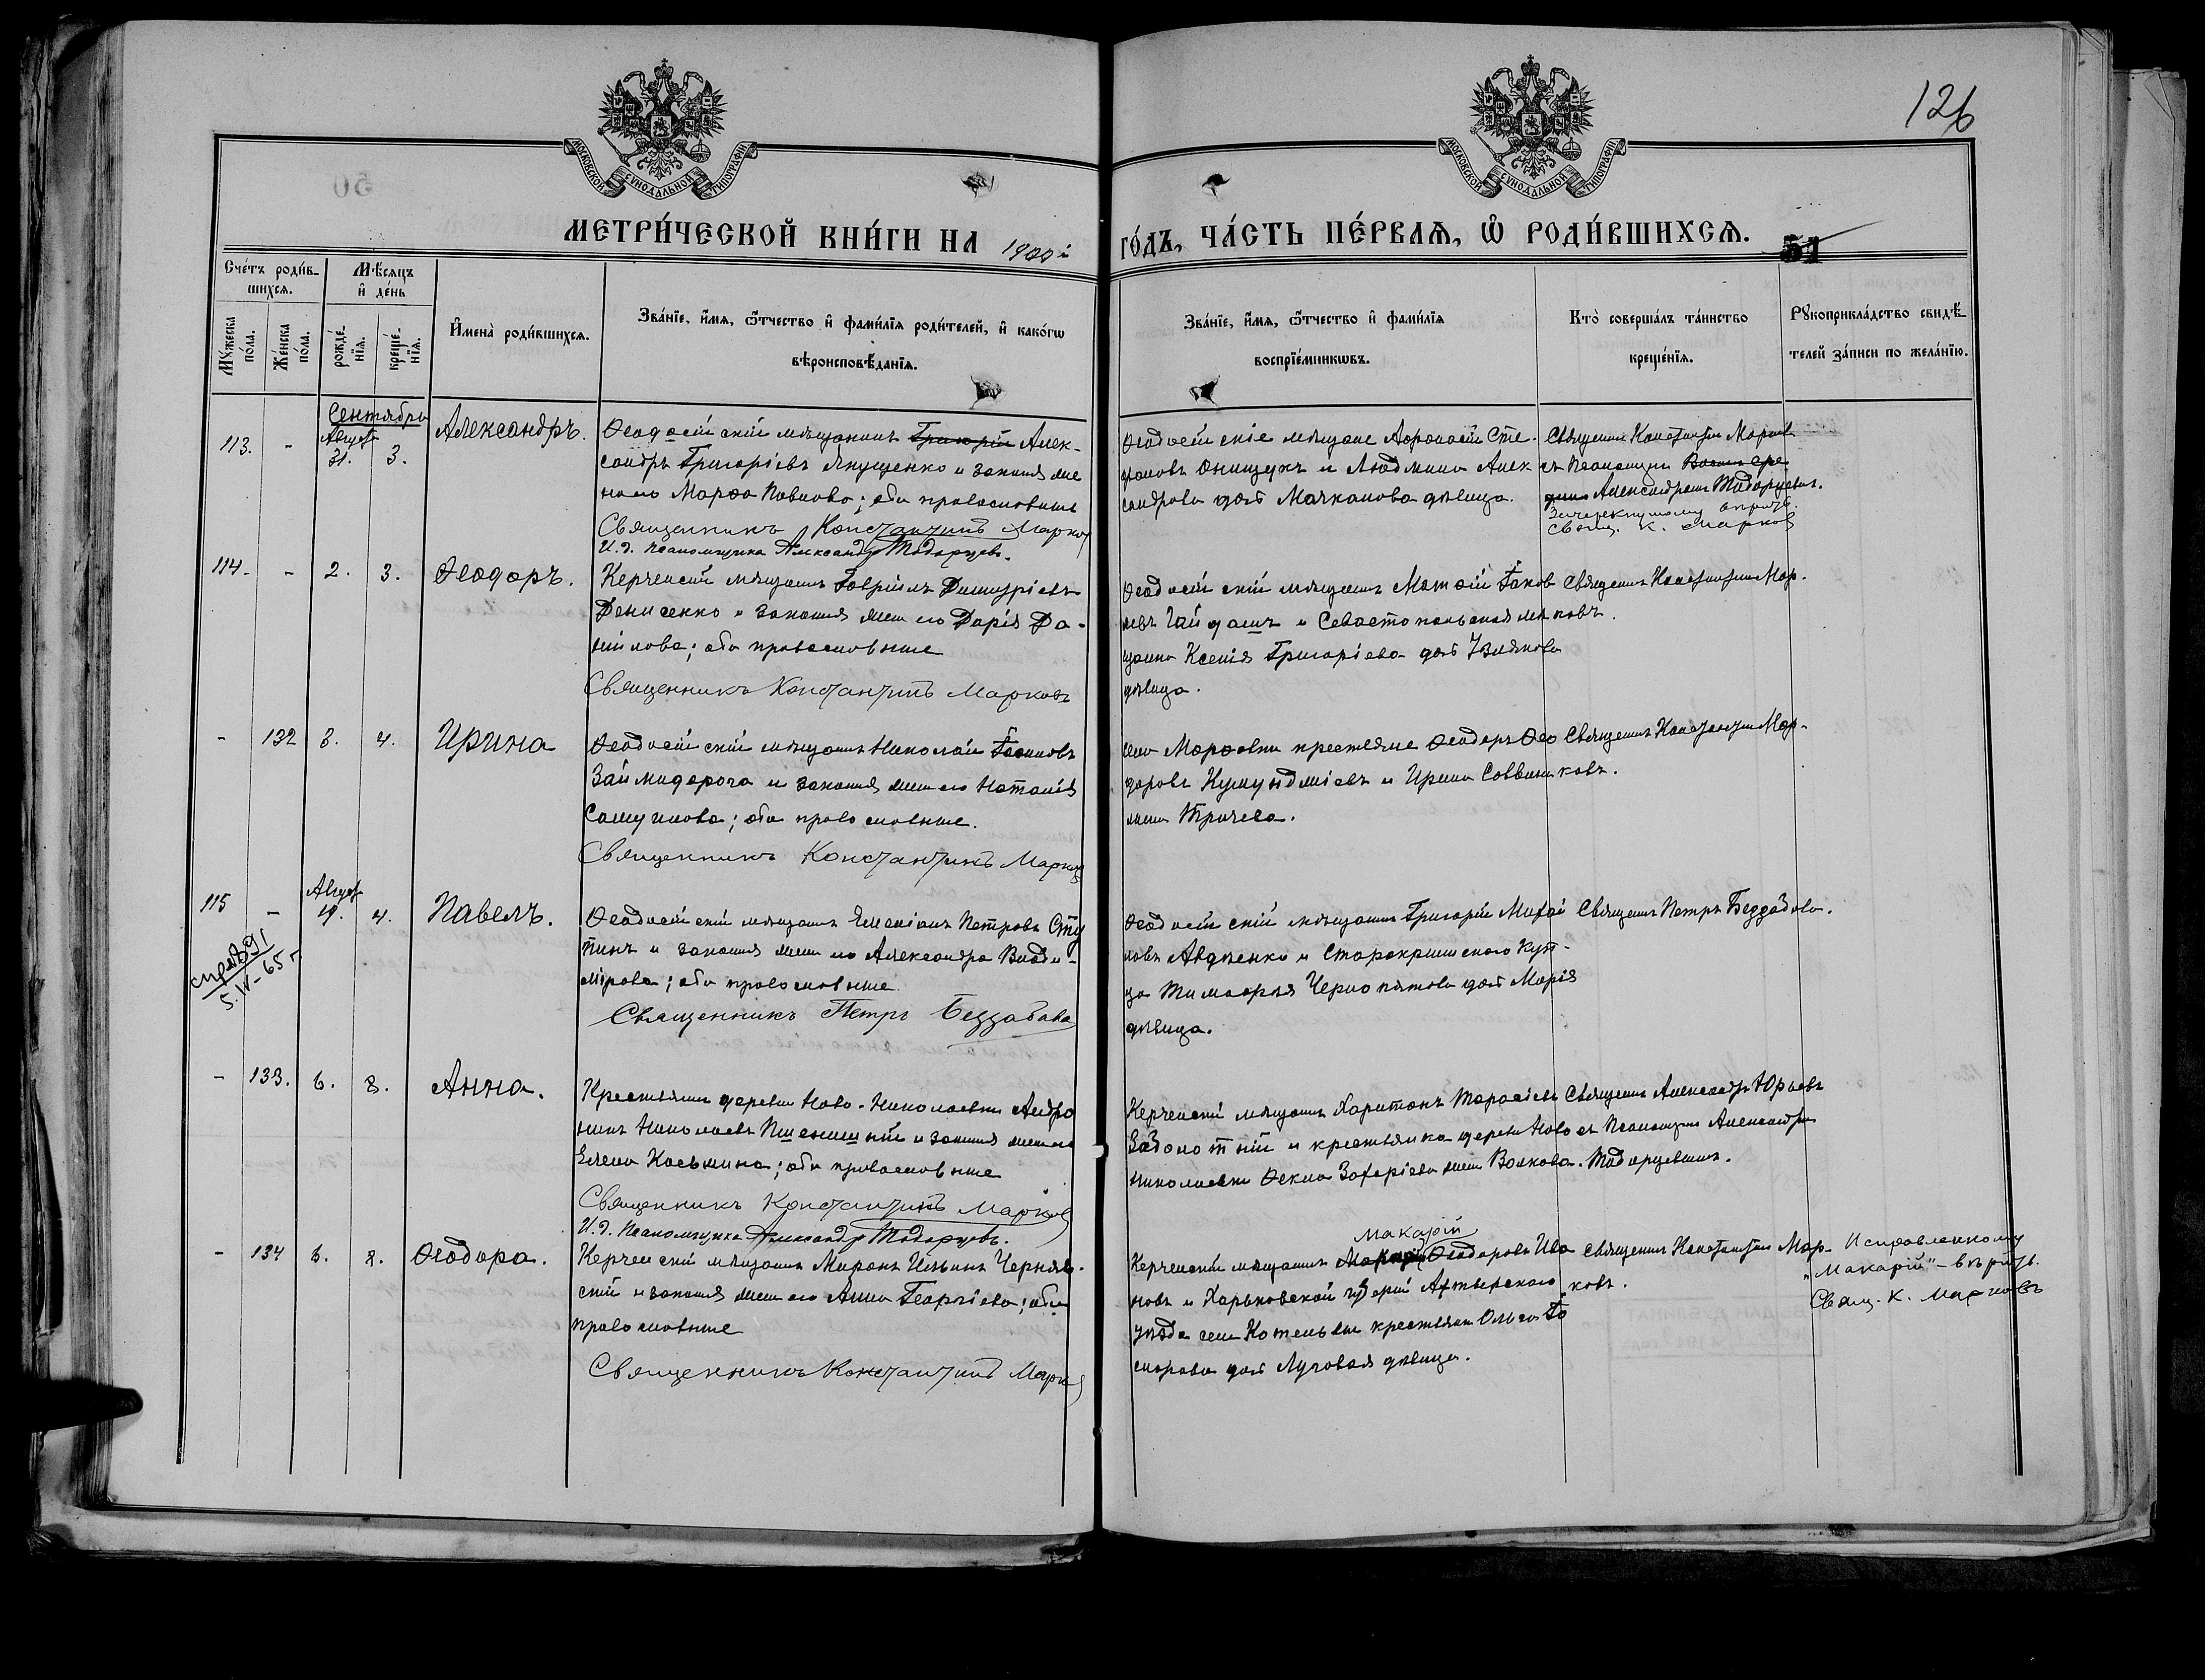 126
МОСКОВСКОЙ СУНОДАЛЬНОЙ ТИПОГРАФІИ
МОСКОВСКОЙ СУНОДАЛЬНОЙ ТИПОГРАФІИ
50
МЕТРИ́ЧЕСКОЙ КНИ́ГИ НА 1900й
ГО́ДЪ, ЧА́СТЬ ПЕ́РВАѦ, Ѡ҆ РОДИ́ВШИХСѦ.
51
Сче́тъ роди́в-
шихсѧ.
Мѣ́сѧцъ
и҆ де́нь
Мꙋ́жеска
по́ла.
Же́нска
по́ла.
рожде́-
нїѧ.
креще́-
нїѧ.
И҆мена̀ роди́вшихсѧ.
Зва́нїе, и҆́мѧ, ѻ҆́тчество и҆ фами́лїѧ роди́телей, и҆ како́гѡ
вѣроисповѣ́данїѧ.
Зва́нїе, и҆́мѧ, ѻ҆́тчество и҆ фами́лїѧ
воспрїе́мникѡвъ.
Кто̀ соверша́лъ та́инство
креще́нїѧ.
Рꙋкоприкла́дство свидѣ́-
телей за́писи по жела́нїю.
Сентябрь
113. - Август 31. 3. Александръ.
Ѳеодосійскій мѣщанинъ Григорій Алек-
сандръ Григоріевъ Янущенко и законная же
на его Марѳа Павлова; оба православные
Священникъ Константинъ Марков
И. д. псаломщика Александръ Тодорцевъ.
Ѳеодосійскіе мѣщане Аѳанасій Сте-
фановъ Онищукъ и Людмила Алек
сандрова дочь Мачканова дѣвица.
Священникъ Константинъ Марков
съ псаломщи
Александромъ Тодорцевым.
Зачеркнутому
свящ. К. Марков
114. - 2. 3. Ѳеодоръ.
Керченскій мѣщанинъ Гавріилъ Димитріевъ
Денисенко и законная жена его Дарія Да-
ніилова; оба православные
Священникъ Константинъ Марковъ
Ѳеодосійскій мѣщанинъ Матѳій Іаков
левъ Гайдашъ и Севастопольская мѣ
щанка Ксенія Григоріева дочь
дѣвица.
Священникъ Константинъ Мар-
ковъ.
- 132 3. 4. Ирина
Ѳеодосійскій мѣщанинъ Николай
и законная жена его Наталія
оба православные.
Священникъ Константинъ Марков
села Марѳовки крестьяне Ѳеодоръ Ѳео
доровъ и Ирина Саввина
Священникъ Константинъ Мар-
ковъ.
115 - Август 19. 4. Павелъ.
5.IV-65г
Ѳеодосійскій мѣщанинъ Емеліанъ Петровъ Сту
пинъ и законная жена его Александра Влади-
мірова; оба православные
Священникъ Петръ Беззабава
Ѳеодосійскій мѣщанинъ Григорій Михаи
ловъ Авдѣенко и Старокрымскаго куп-
ца Тимоѳея Чернопятова дочь Марія
дѣвица.
Священникъ Петръ Беззабава.
- 133. 6. 8. Анна.
Крестьянинъ деревни Ново-Николаевки Андро
никъ Николаевъ Пшеничный и законная жена его
Елена Косьмина; оба православные
Священникъ Константинъ Марков
И. д. Псаломщика Александръ Тодорцевъ.
Керченскій мѣщанинъ Харитонъ Тарасіевъ
Заболотній и крестьянка деревни Ново
николаевки Ѳекла Захаріева жена Волкова.
Священникъ Александръ Юрьевъ
съ Псаломщи Александром
Тодорцевымъ.
- 134 6. 8. Ѳеодора.
Керченскій мѣщанинъ Миронъ Ильинъ Чернявс-
скій и законная жена его Анна Георгіева; оба
православные
Священникъ Константинъ Марков
Макарій
Керченскій мѣщанинъ Ѳеодоровъ Ива
новъ и Харьковской губерніи Ахтырскаго
уѣзда села Котельвы крестьянка Ольга
дочь Луговая дѣвица.
Священникъ Константинъ Мар-
ковъ.
Исправленному
"Макарій" - вѣрить.
Свящ. К. Марковъ